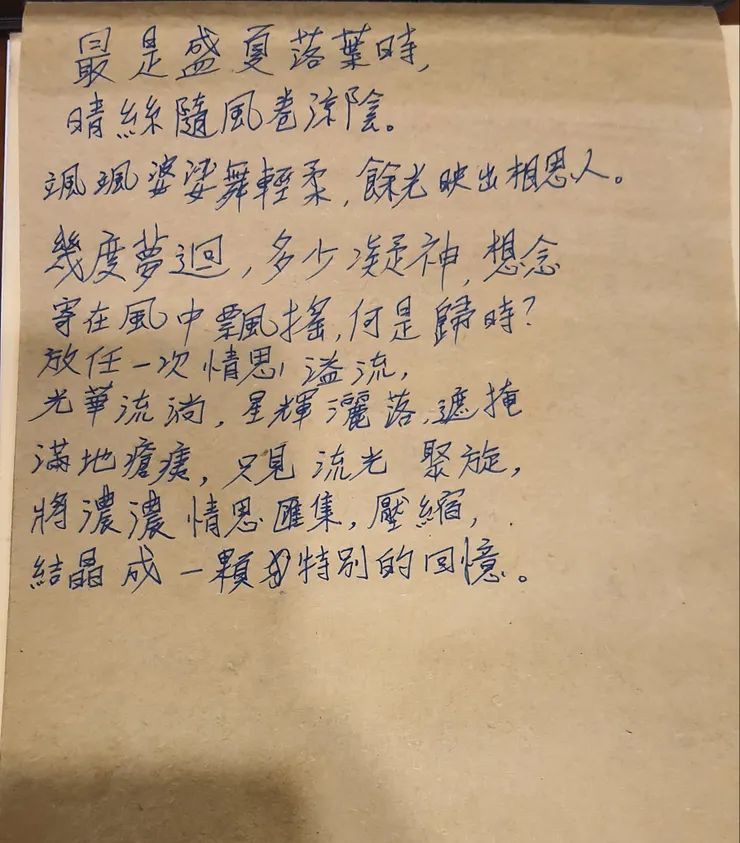 最是盛夏落葉時,
晴絲隨風卷涼陰。
颯颯婆娑舞輕柔,餘光映出相思人。
幾度夢迴,多少凝神,想念
寄在風中飄搖,何是歸時?
放任一次情思溢流,
光華流淌,星輝灑落,遮掩
滿地瘡痍,只見流光聚旋,
將濃濃情思匯集,壓縮,
結晶成一顆特別的回憶。